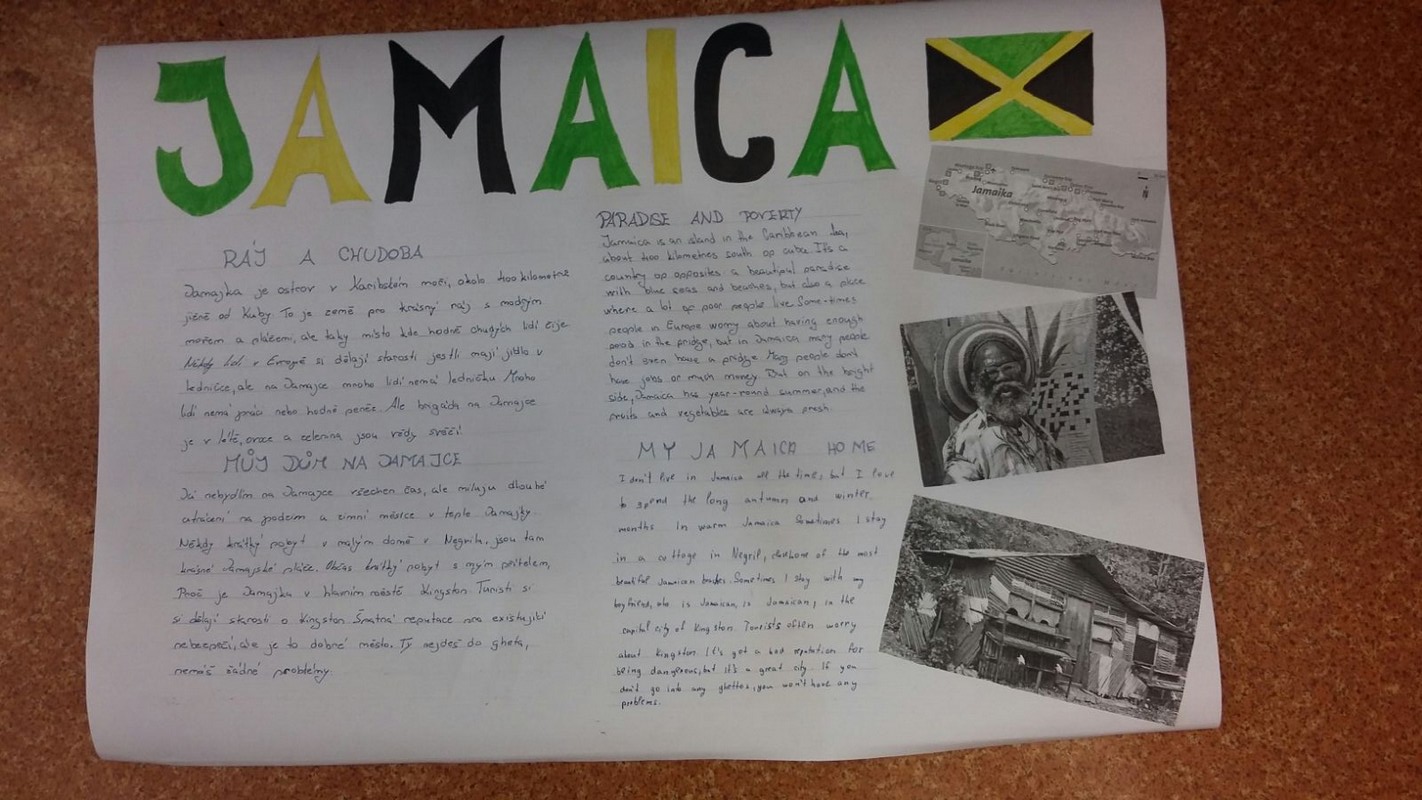 JAMAICA
RÁJ A CHUDOBA
Jamajka je ostrov v Karibském moři, okolo 400 kilometrů
jižně od Kuby. To je země pro krásný ráj s modrým
mořem a plážemi, ale taky místo kde hodně chudých lidí žije
Někdy lidi v Evropě si dělají starosti jestli mají jídlo v
ledničce, ale na Jamajce mnoho lidí nemá ledničku Mnoho
lidí nemá práci nebo hodně peněz. Ale brigáda na Jamajce
je v létě, ovoce a zelenina jsou vždy svěží!
MŮJ DŮM NA JAMAJCE
Já nebydlím na Jamajce všechen čas, ale miluju dlouhé
utrácení na podzim a zimní měsíce v teple Jamajky.
Někdy krátký pobyt v malým domě v Negrilu, jsou tam
krásné Jamajské pláže. Občas krátký pobyt s mým přítelem,
Proč je Jamajka v hlavním městě Kingston. Turisti si
si dělají starosti o Kingston. Špatná reputace pro existující
nebezpečí, ale je to dobré město. Ty nejdeš do gheta,
nemáš žádné problémy.
PARADISE AND POVERTY
Jamaica is an island in the Caribbean Sea,
about 400 kilometres south op cuba. It's a
country op opposites: a beautipul paradise
with blue seas and beaches, but also a place
where a lot op poor people live. Some-times
people in Europe worry about having enough
pood in the pridge, but in Jamaica many people
don't even have a pridge. Many people don't
have jobs or much money. But on the bright
side, Jamaica has year-round summer, and the
pruits and vegetables are always presh.
MY JAMAICA HOME
I don't live in Jamaica all the time, but I love
to spend the long autumn and winter
months In warm Jamaica Sometimes I stay
in a cottage in Negril, one of the most
beautiful Jamaican Sometimes I stay with my
boyfriend, who is Jamaican, is Jamaican, in the
capital city of Kingston. Tourists often worry
about Kingston. It's got a bad reputation for
being dangerous, but it's a great city. If you
don't go into any ghettos, you won't have any
problems.
Jamaika